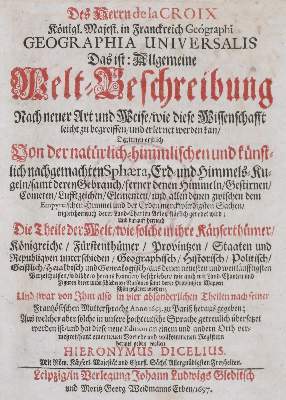 Des Herrn de la CROIX
Königl. Majest. in Franckreich Geographi
GEOGRAPHIA UNIVERSALIS
Das ist: Allgemeine
Welt-Beschreibung
Nach neuer Art und Weise/ wie diese Wissenschafft
leicht zu begreiffen/ und erlernet werden kan/
Darinnen erstlich
Von der natürlich-himmlischen und künst-
lich nachgemachten Sphæra, Erd- und Himmels-Ku-
geln/ samt deren Gebrauch/ ferner denen Himmeln/ Gestirnen/
Cometen/ Lufft-Zeichen/ Elementen/ und allen denen zwischen dem
Und hierauf
Die Theile der Welt/ wie solche in ihre Käyserthümer/
Königreiche/ Fürstenthümer/ Provintzen/ Staaten und
Republiquen unterschieden/ Geographisch/ Historisch/ Politisch/
Geistlich/ und Genealogisch/ aus denen neuesten
Und zwar von Ihm also in vier absonderlichen Theilen nach seiner
Frantzösischen Muttersprach Anno 1693. zu Pariß heraus gegeben;
Anitzo aber solche in unsere hochteutsche Sprache getreulich übersetzet
worden ist: und hat diese neue Edition an einem und andern Orth
HIERONYMUS DICELIUS.
Leipzig/ in Verlegung Johann Ludwigs Gleditsch
und Moritz Georg Weidmanns Erben/ 1697.